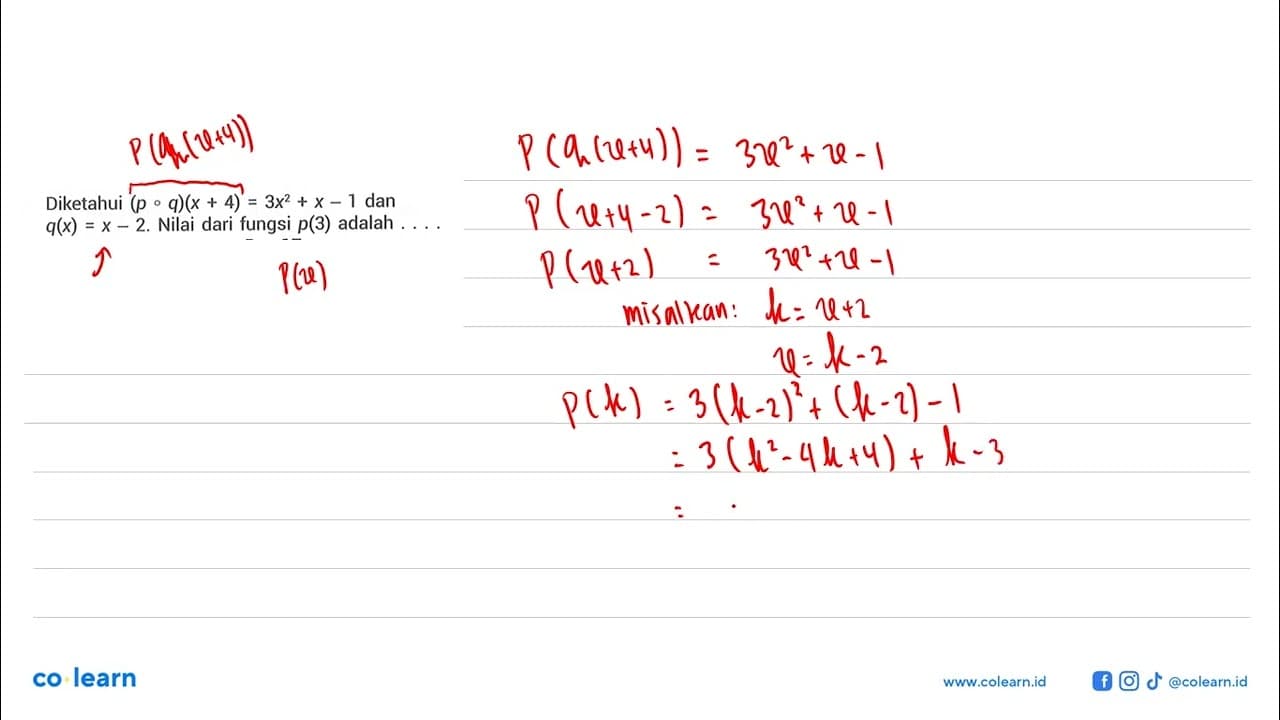 P(q(x+4))
Diketahui (p ∘ q)(x + 4) = 3x² + x – 1 dan
q(x) = x – 2. Nilai dari fungsi p(3) adalah . . . .
P(x)
P(q(x+4)) = 3x² + x - 1
P(x+4-2) = 3x² + x - 1
P(x+2) = 3x² + x - 1
misalkan: k = x+2
x = k - 2
P(k) = 3(k-2)² + (k-2) - 1
= 3(k² - 4k + 4) + k - 3
=
co learn
www.colearn.id
@colearn.id